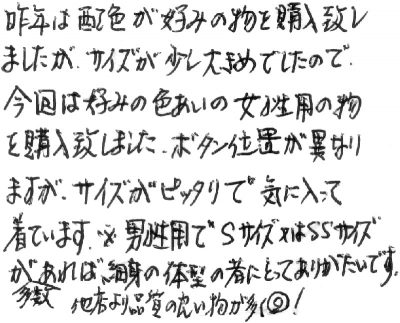 昨年は配色が好みの物を購入致し
ましたが、サイズが少し大きめでしたので、
今回は好みの色あいの女性用の物
を購入致しました。ボタン位置が異なり
ますが、サイズがピッタリで気に入って
着ています。※男性用でSサイズ又はSSサイズ
が多数あれば、細身の体型の者にとってありがたいです。
他店より品質の良い物が多く◎!